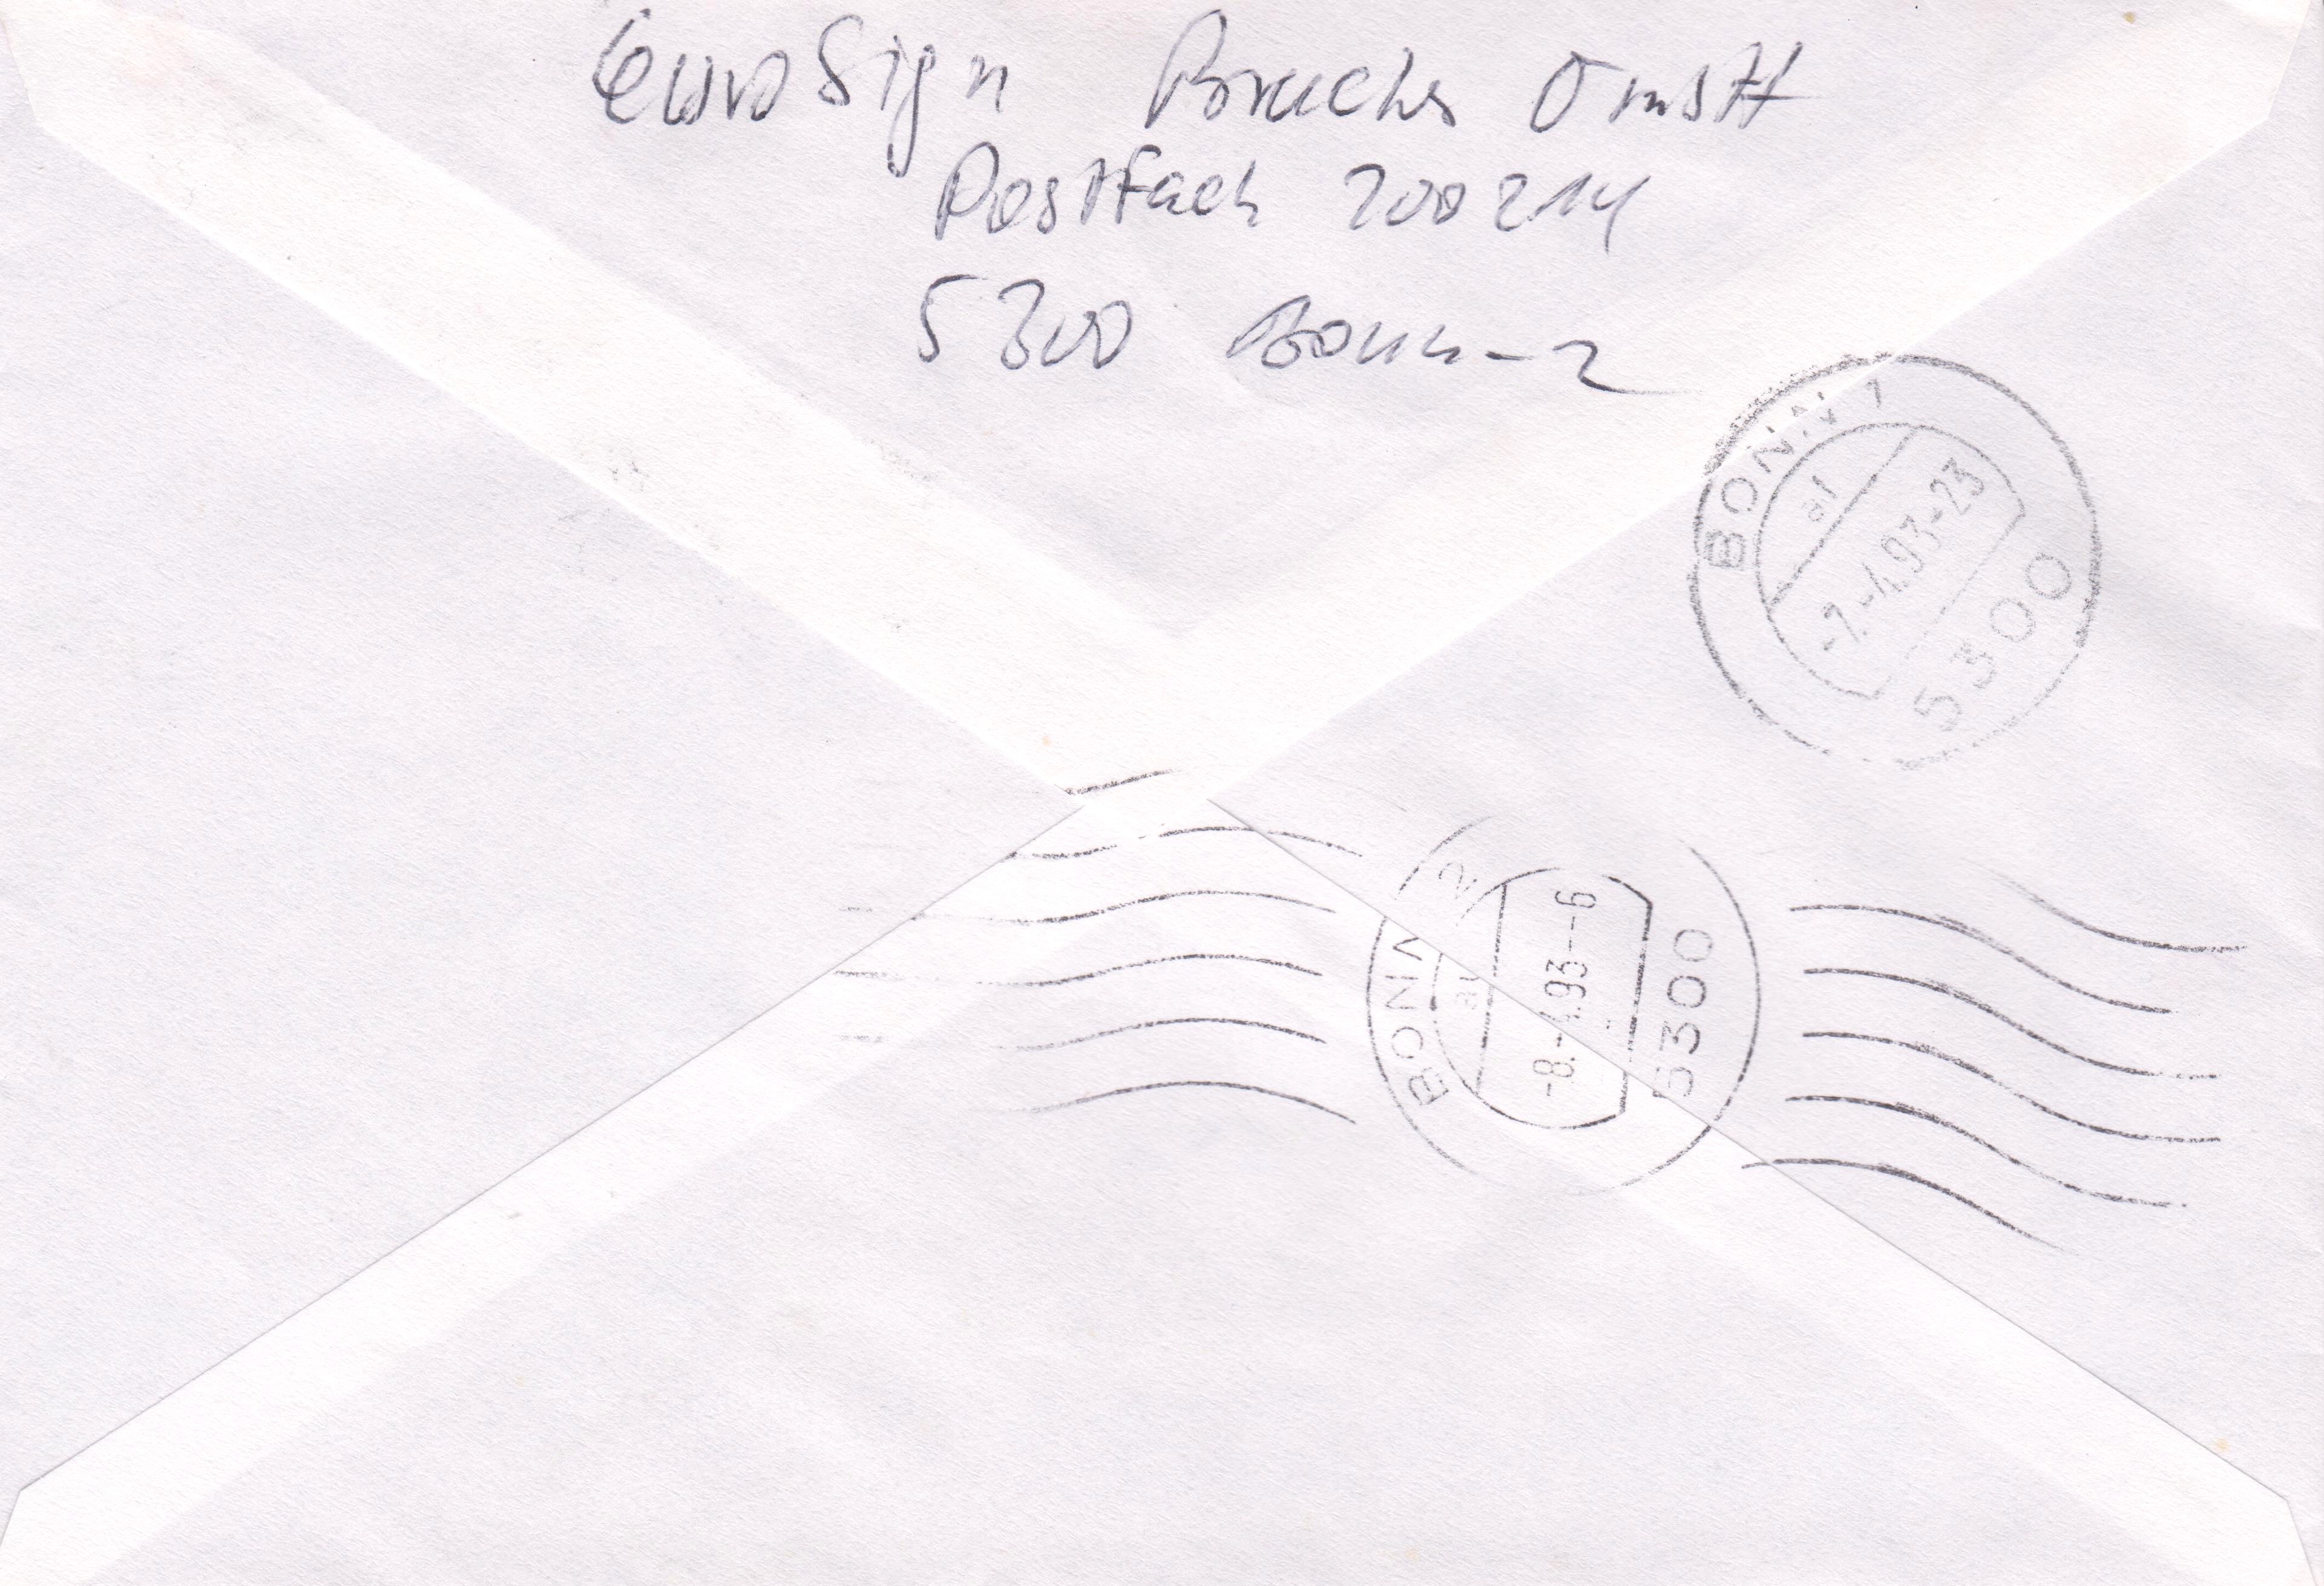 Euro Sign Bruchs GmbH
Postfach 200214
5300 Bonn-2
BONN 1
al
-7.-4.93-23
5300
BONN 2
-8.-4.93--6
5300